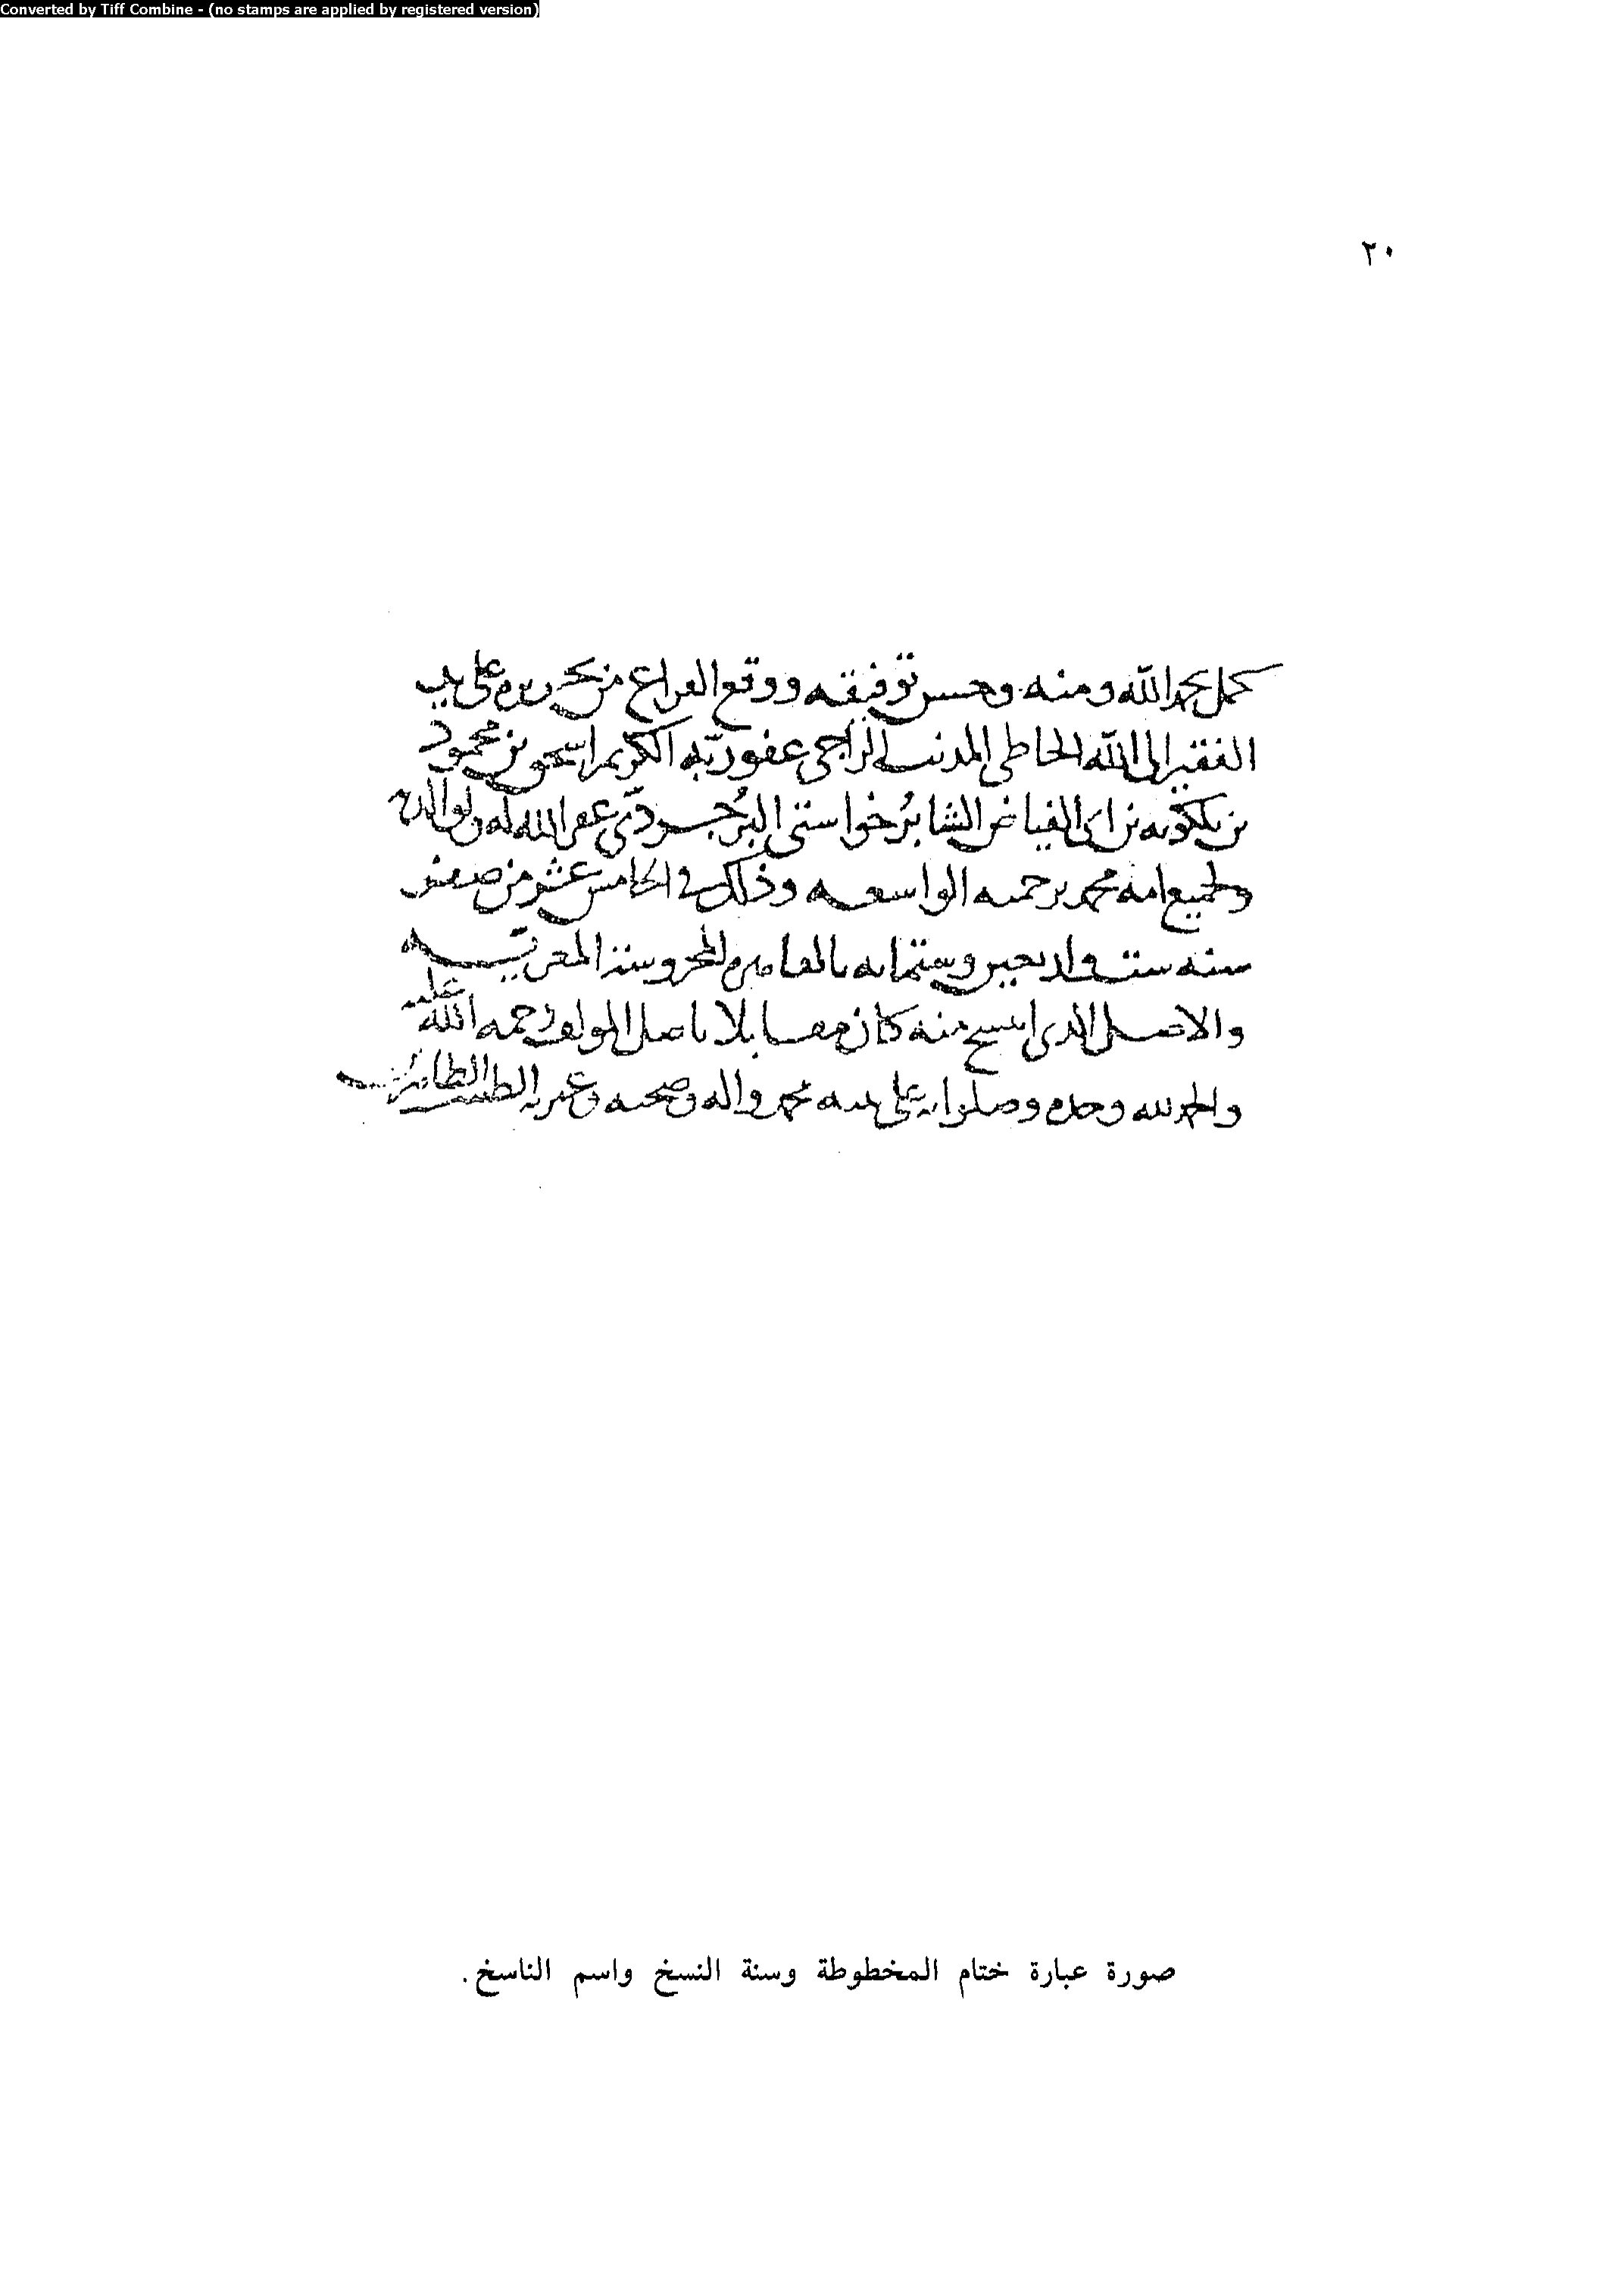 Converted by Tiff Combine - (no stamps are applied by registered version)
٢٠
كمل بحمد الله ومنه وحسن توفيقه ووقع الفراغ من تحريره على يد
الفقير الى الله الخاطي المذنب الراجي عفو ربه الكريم اسحق بن محمود
بن بلكويه بن ابي الفياض الشابرخواستي البرجردي عفر الله له ولوالديه
ولجميع امة محمد برحمته الواسعه وذلك في الخامس عشر من صفر
سنه ست واربعين وستمايه بالقاهرة المحروسة المعزيه
والاصل الذي انتسخ منه كان مقابلا باصل المولف رحمه الله عليه
والحمد لله وحده وصلواته على نبيه محمد واله وصحبه وعترته الطيبين الطاهرين
صورة عبارة ختام المخطوطة وسنة النسخ واسم الناسخ.